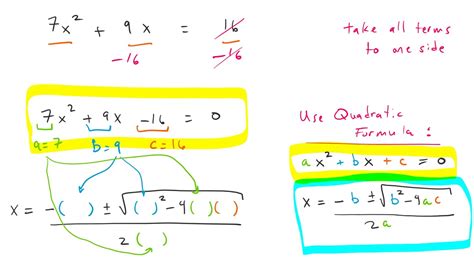 7x² + 9x = 16
-16 -16
take all terms
to one side
7x² + 9x -16 = 0
a=7 b=9 c=16
Use Quadratic
Formula :
ax² + bx + c = 0
x = -( ) ± √( )² - 4( )( ) / 2( )
x = -b ± √b² - 4ac / 2a